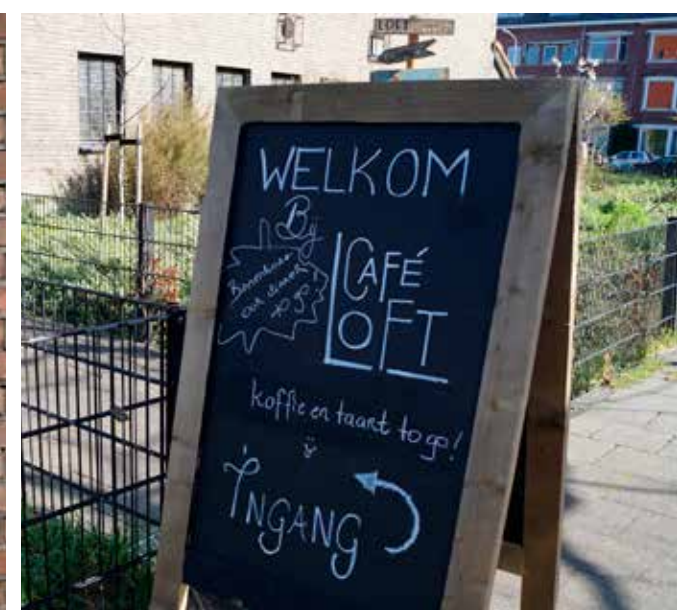 LOFT
WELKOM
Bij
CAFÉ
LOFT
to go
koffie en taart to go!
INGANG